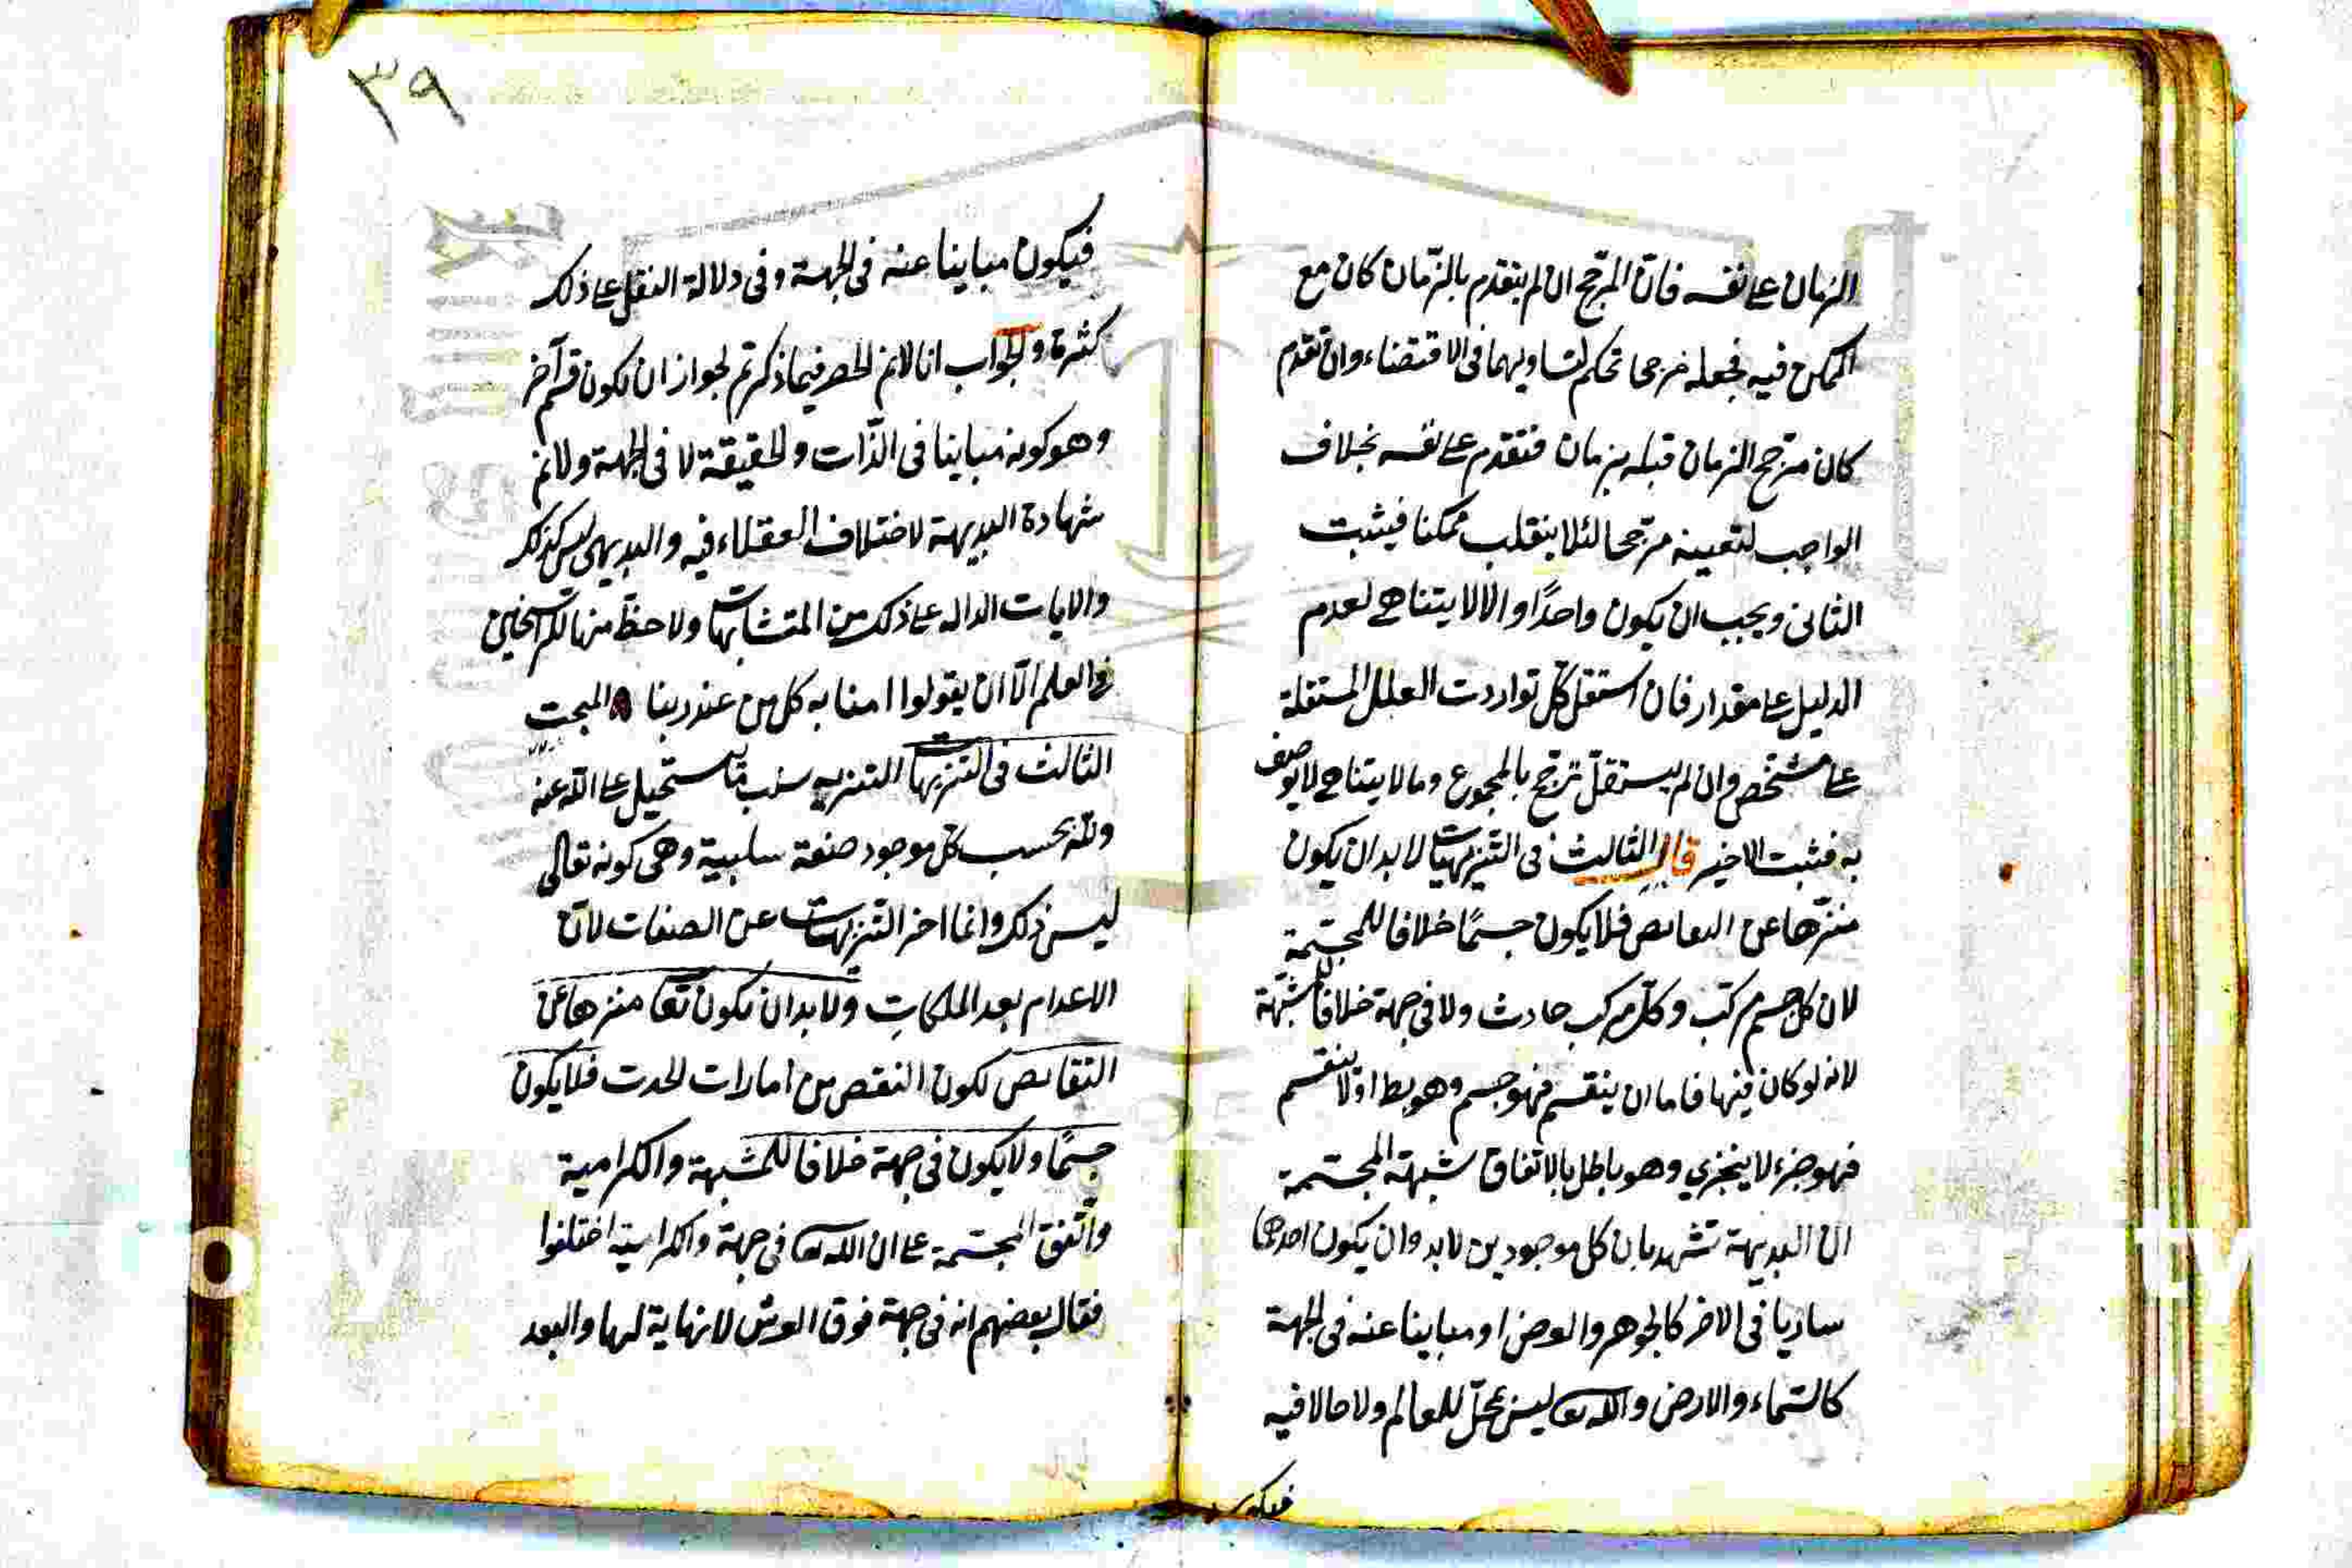 الزمان على نفسه فان المرجح ان لم يتقدم بالزمان كان مع
الممكن فيه فجعله مرجحا تحكم لتساويهما في الاقتضاء وان تقدم
كان مرجح الزمان قبله بزمان فتقدم على نفسه بخلاف
الواجب لتعينه مرجحا لئلا ينقلب ممكنا فيثبت
الثاني ويجب ان يكون واحدًا والا لا يتناهى لعدم
الدليل على مقدار فان استقل كل تواردت العلل المستقلة
على مشخص وان لم يستقل ترجح بالمجموع وما لا يتناهى لا يوصف
به فثبت الاخير قال الثالث في التنزيهات لا بد ان يكون
منزها عن النقايص فلا يكون جسمًا خلافا للمجسّمة
لان كل جسم مركب وكل مركب حادث ولا في جهة خلافا للمشبّهة
لانه لو كان فيها فاما ان ينقسم فهو جسم وهو بط او لا ينقسم
فهو جزء لا يتجزي وهو باطل بالاتفاق شبهة المجسّمة
ان البديهة تشهد بان كل موجودين لا بد وان يكون احدهما
ساريا في الاخر كالجوهر والعرض او مباينا عنه في الجهة
كالسّماء والارض والله تعالى ليس بمحلّ للعالم ولا حالا فيه
فيكون
٣٩
فيكون مباينا عنه في الجهة وفي دلالة النقل على ذلك
كثرة والجواب انا لا نم الحصر فيما ذكرتم لجواز ان يكون قسم آخر
وهو كونه مباينا في الذّات والحقيقة لا في الجهة ولا نم
شهادة البديهة لاختلاف العقلاء فيه والبديهي ليس كذلك
والايات الداله على ذلك من المتشابهات ولا حظّ منها للراسخين
في العلم الّا ان يقولوا امنا به كل من عند ربنا المبحث
الثالث في التنزيهات التنزيه سلب ما يستحيل على الله عنه
ولله بحسب كلّ موجود صفة سلبية وهي كونه تعالى
ليس ذلك وانما اخر التنزيهات عن الصفات لانّ
الاعدام بعد الملكات ولا بد ان يكون تعا منزها عن
النقايص لكون النقص من امارات الحدث فلا يكون
جسمًا ولا يكون في جهة خلافا للمشبهة والكرامية
واتفق المجسّمة على ان الله تعالى في جهة والكرامية اختلفوا
فقال بعضهم انه في جهة فوق العرش لا نهاية لها والبعد